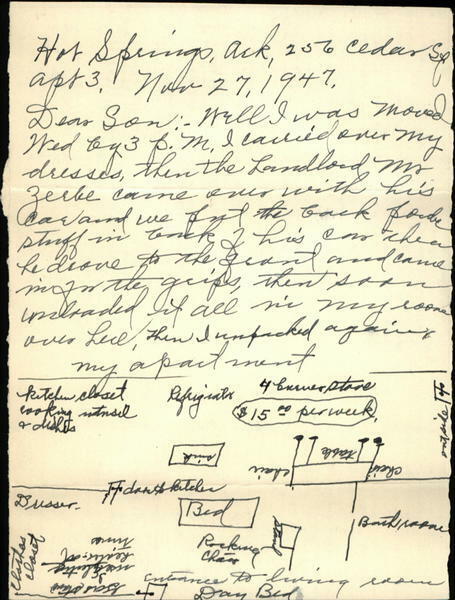 Hot Springs, Ark, 256 Cedar St
apt 3. Nov 27, 1947.
Dear Son:- Well I was moved
Wed by 3 P.M. I carried over my
dresses, then the Landlord Mr
Zerbe came over with his
car and we put the back porch
stuff in back of his car then
he drove to the front and came
in for the grips, then soon
unloaded it all in my room
over here, then I unpacked again,
my apartment
Kitchen closet
cooking utensil
& dishes
Refrigrator
4 burner stove
$15.00 per week.
sink
chair
table
chair
door to kitchen
Dresser
Bed
Bath room
Rocking
Chair
clothes
closet
entrance to living room
Day Bed